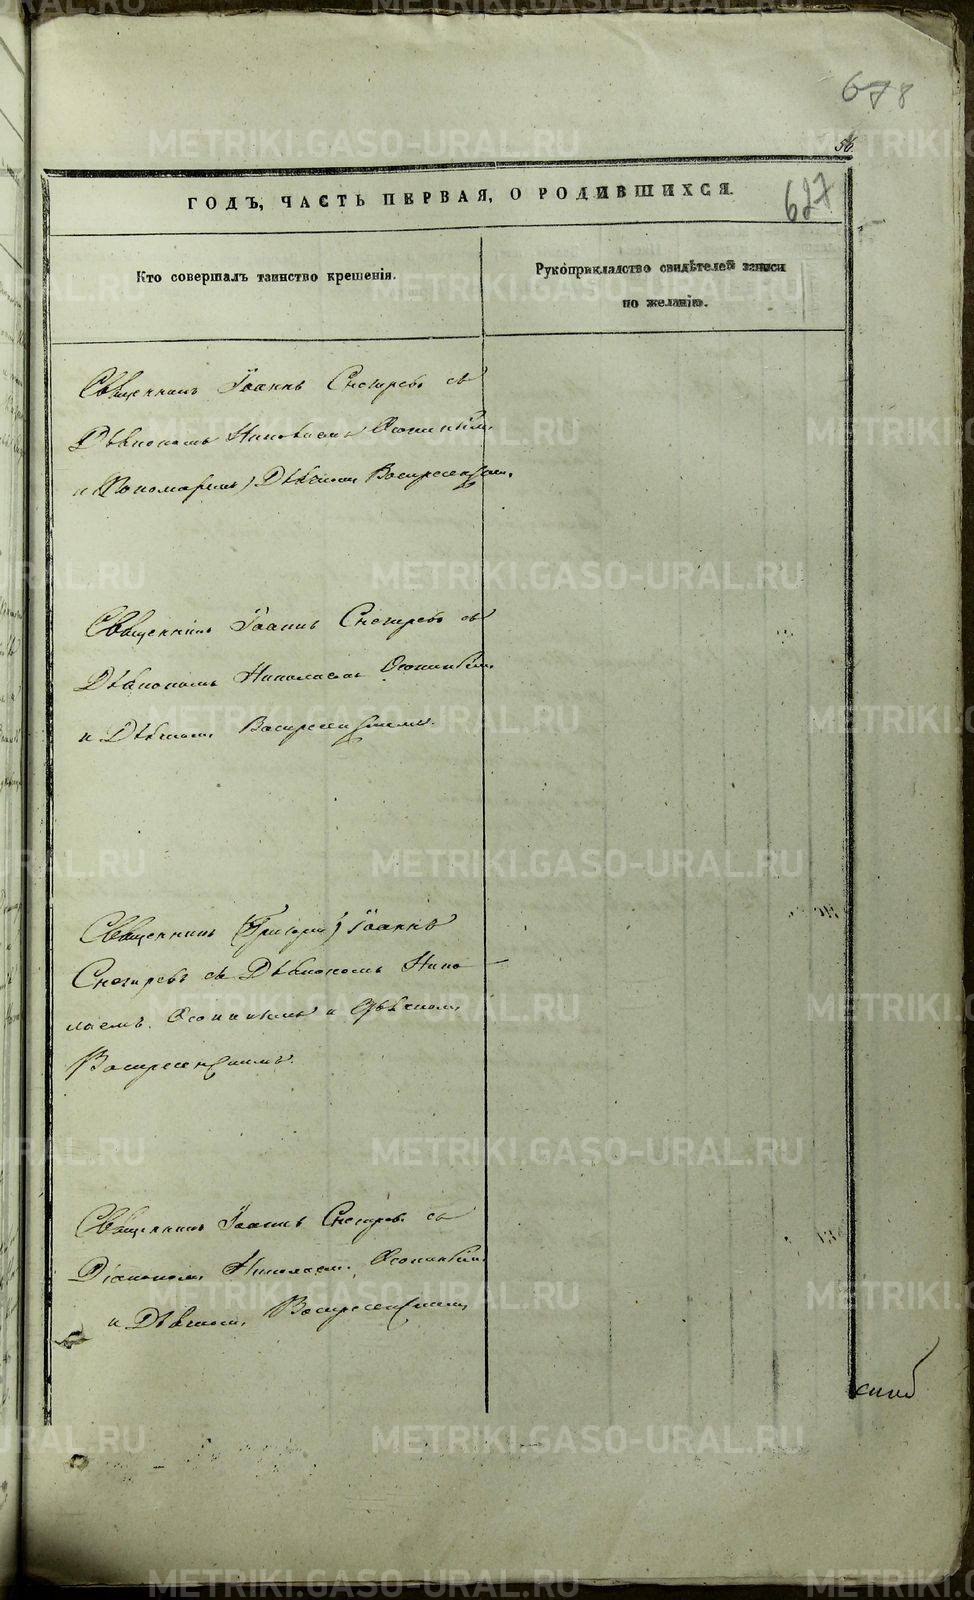 678
56.
ГОДЪ, ЧАСТЬ ПЕРВАЯ, О РОДИВШИХСЯ.
627
Кто совершалъ таинство крещенія.
Рукоприкладство свидѣтелей записи
по желанію.
Священникъ Іоаннъ Снегиревъ съ
Дьякономъ Николаемъ
и (Пономаремъ) Дьячкомъ Воскресенскимъ.
Священникъ Іоаннъ Снегиревъ съ
Дьякономъ Николаемъ
и Дьячкомъ Воскресенскимъ.
Священникъ (Григорій) Іоаннъ
Снегиревъ съ Дьякономъ Нико-
лаемъ и Дьячкомъ
Воскресенскимъ.
Священникъ Іоаннъ Снегиревъ съ
Діакономъ Николаемъ
и Дьячкомъ Воскресенскимъ
METRIKI.GASO-URAL.RU